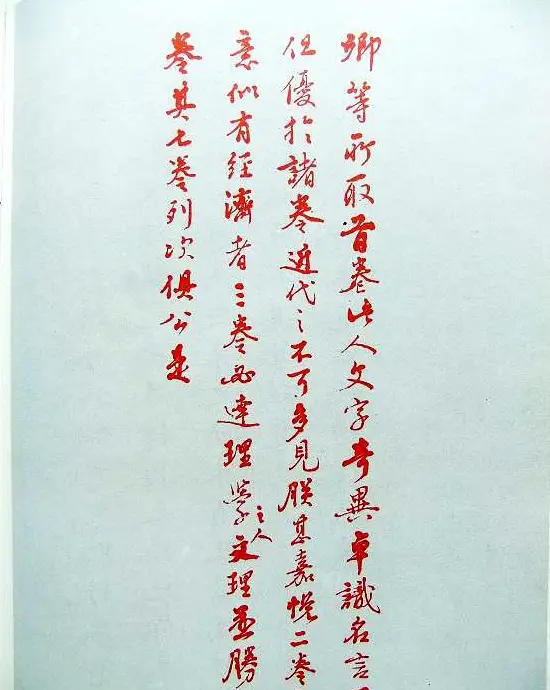 卿等所取首卷此人文字奇異卓識名言
但優於諸卷近代之不可多見朕甚嘉悅二卷
意似有經濟者三卷必達理學之人文理並勝
卷其七卷列次俱公是